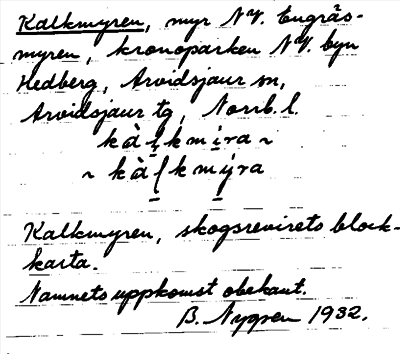 Kalkmyren, myr NV. Tugräs-
myren, kronoparken NV. byn
Hedberg, Arvidsjaur sn,
Arvidsjaur tg, Norrb. l.
kàl̠kmi̠ra ~
~ kàl̠kmy̠ra
Kalkmyren, skogsrevirets block-
karta.
Namnets uppkomst obekant.
B. Nygren 1932.